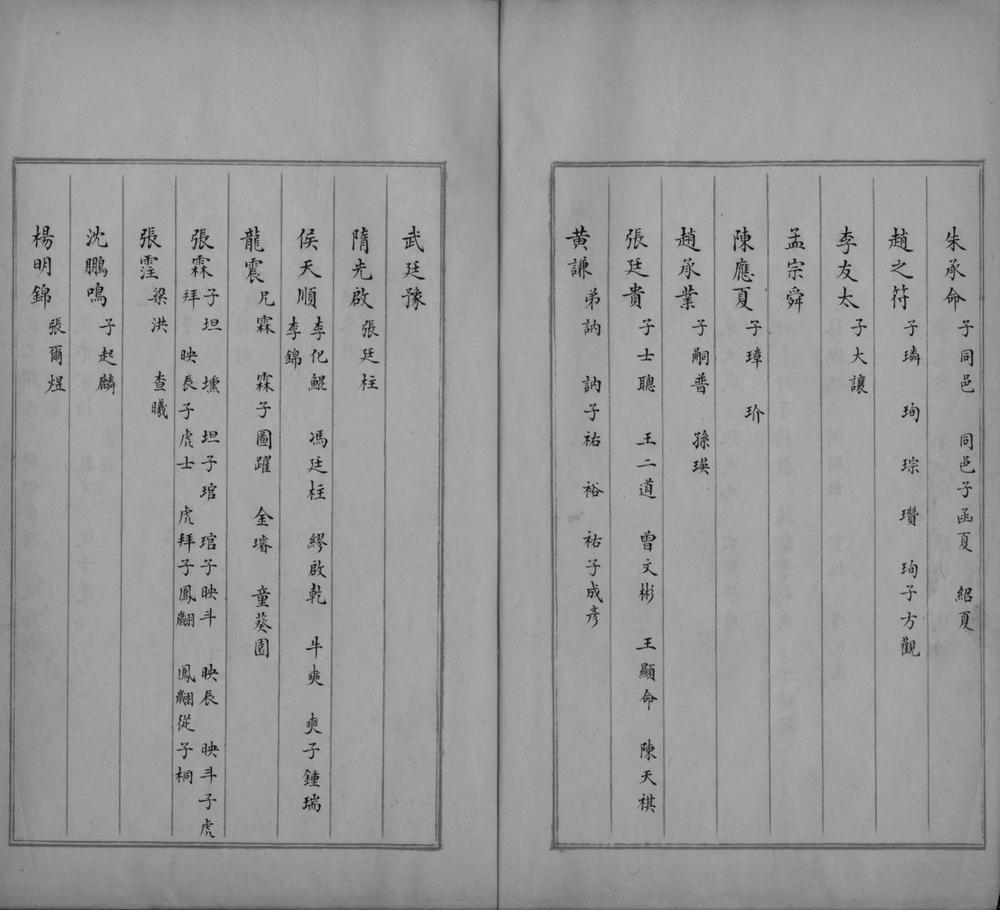 朱承命 子同邑 同邑子函夏 紹夏
趙之符 子璘 珣 琮 瓚 珣子方觀
李友太 子大讓
孟宗舜
陳應夏 子璋 玠
趙承業 子嗣普 孫瑛
張廷貴 子士聰 王二道 曾文彬 王顯命 陳天祺
黃謙 弟訥 訥子祐 裕 祐子成彥
武廷豫
隋先啟 張廷柱
侯天順 李化鯤 馮廷柱 繆啟乾 牛奭 奭子鍾瑞
李錦
龍震 兄霖 霖子圖躍 金璿 童葵園
張霖 子坦 壎 坦子琯 琯子映斗 映辰 映斗子虎
拜 映辰子虎士 虎拜子鳳翽 鳳翽從子桐
張霔 梁洪 查曦
沈鵬鳴 子起麟
楊明錦 張爾煜